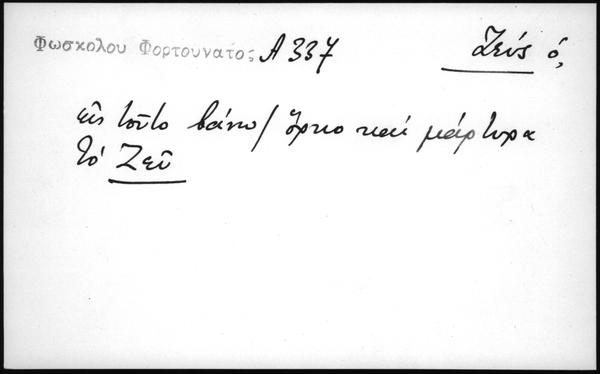 Φωσκολου Φορτουνατος Α 337 Ζεύς ὁ,
εἰς τοῦτο βάνω / ὅρκο καί μάρτυρα
τό Ζεῦ